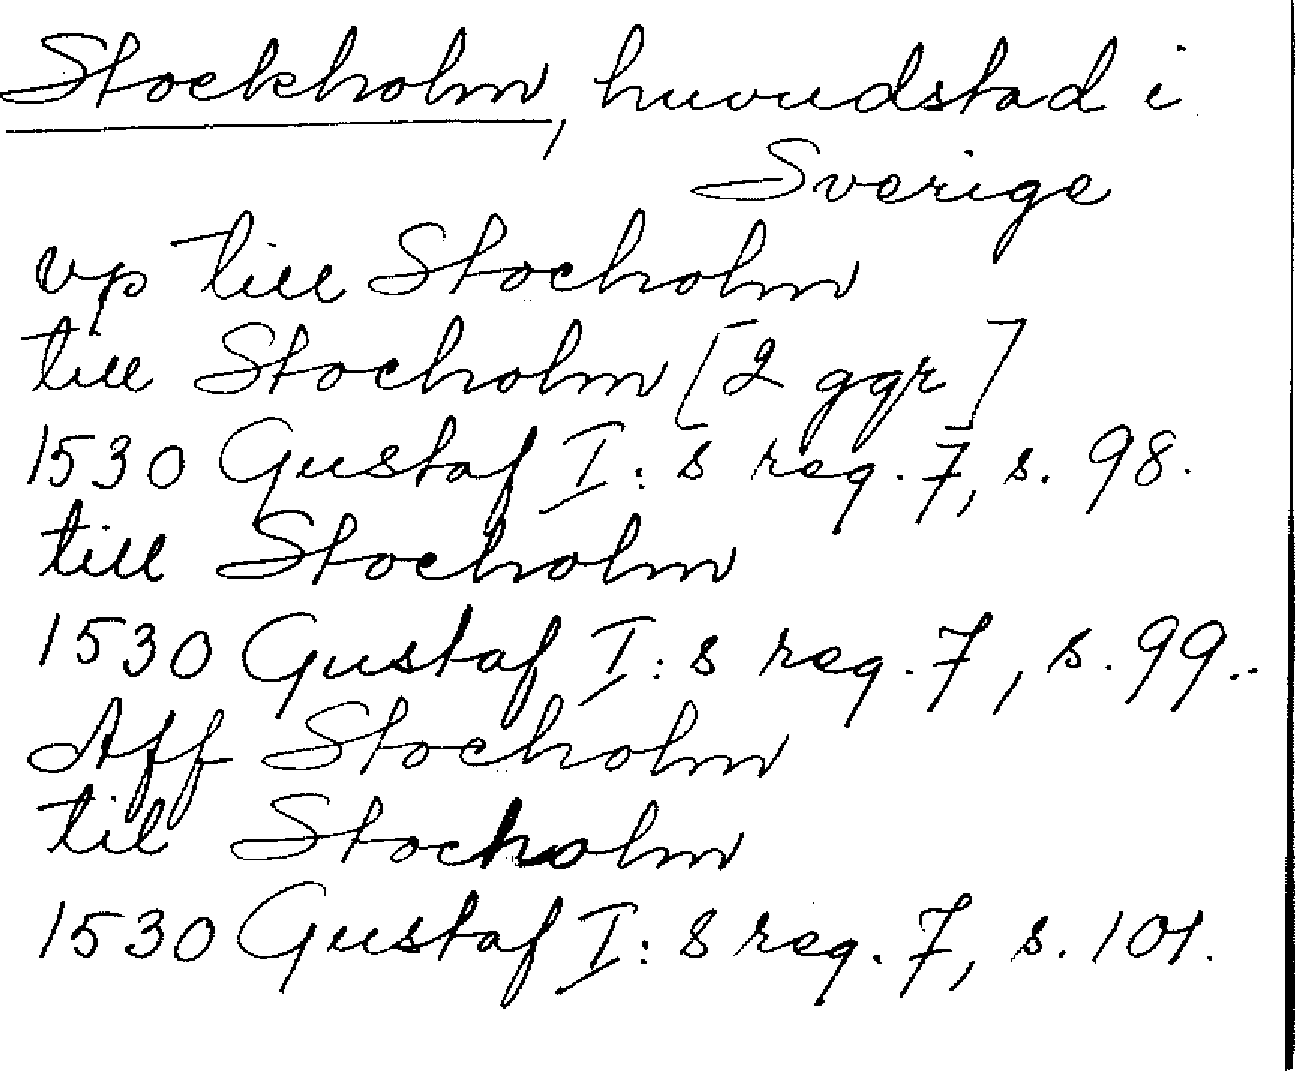 Stockholm, huvudstad i
Sverige
vp till Stocholm
till Stocholm [2 ggr]
1530 Gustaf I:s reg. 7, s. 98.
till Stocholm
1530 Gustaf I:s reg. 7, s. 99..
Aff Stocholm
til Stocholm
1530 Gustaf I:s reg. 7, s. 101.